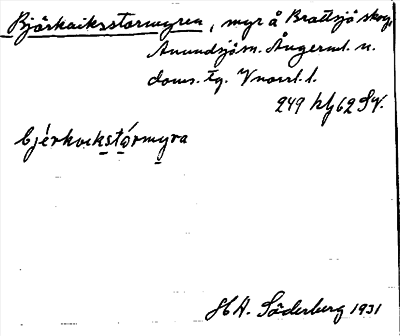 Björkviksstormyren, myr å Brattsjö skog,
Anundsjö sn. Ångerml. n.
doms. tg. Vnorrl. l.
249 hlj 62 SV.
bjérkvikstórmyra
H A. Söderberg 1931